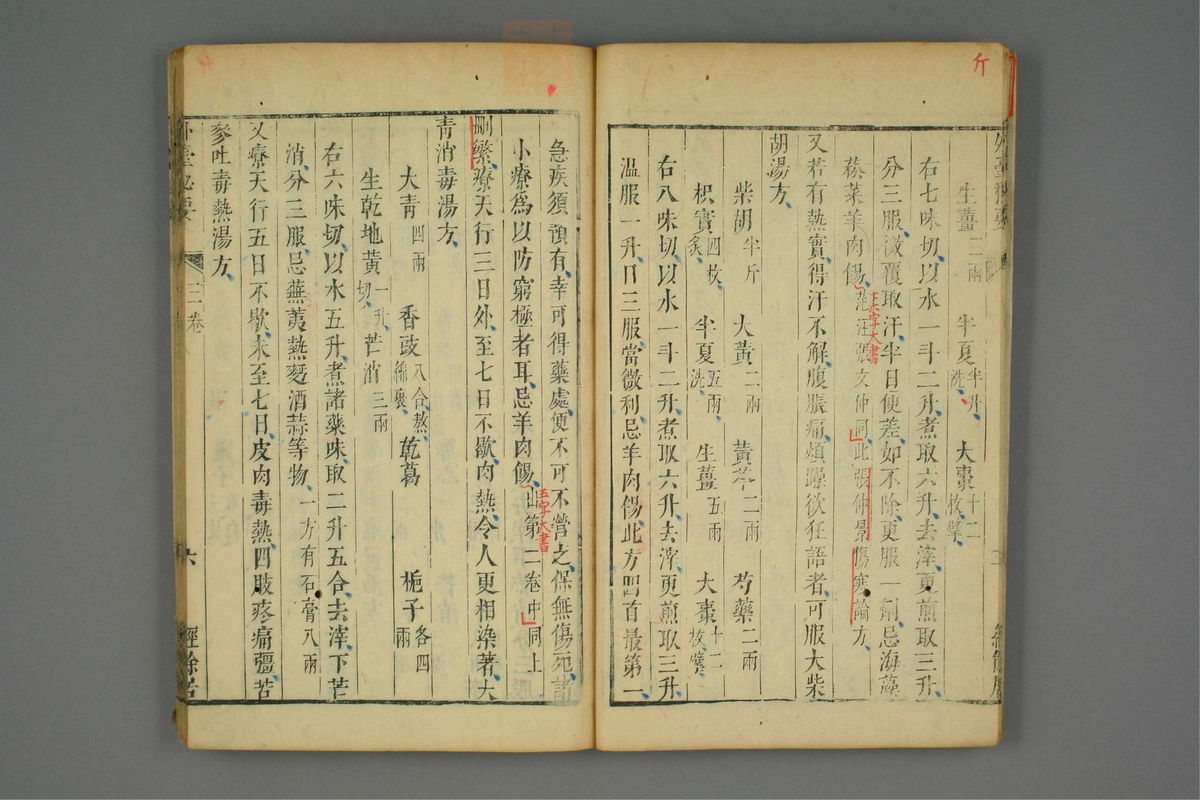 生薑三兩　半夏半升洗　大棗十二枚擘
右七味切以水一斗二升煮取六升去滓更煎取三升
分三服微覆取汗半日便差如不除更服一劑忌海藻
菘菜羊肉餳范汪張文仲同此張仲景傷寒論方
五字大書
又若有熱實得汗不解腹脹痛煩躁欲狂語者可服大柴
胡湯方
柴胡半斤　大黃二兩　黃芩二兩　芍藥二兩
枳實四枚炙　半夏五兩洗　生薑五兩　大棗十二枚擘
右八味切以水一斗二升煮取六升去滓更煎取三升
溫服一升日三服當微利忌羊肉餳此方四首最第一
急疾須預有幸可得藥處便不可不營之保無傷死諸
小療爲以防窮極者耳忌羊肉餳出第二卷中同上
五字大書
刪繁療天行三日外至七日不歇肉熱令人更相染著大
青消毒湯方
大青四兩　香豉八合熬綿裹　乾葛　梔子各四兩
生乾地黃一升切　芒消三兩
右六味切以水五升煮諸藥味取二升五合去滓下芒
消分三服忌蕪荑熱麪酒蒜等物一方有石膏八兩
又療天行五日不歇未至七日皮肉毒熱四肢疼痛彊苦
參吐毒熱湯方
三卷
六